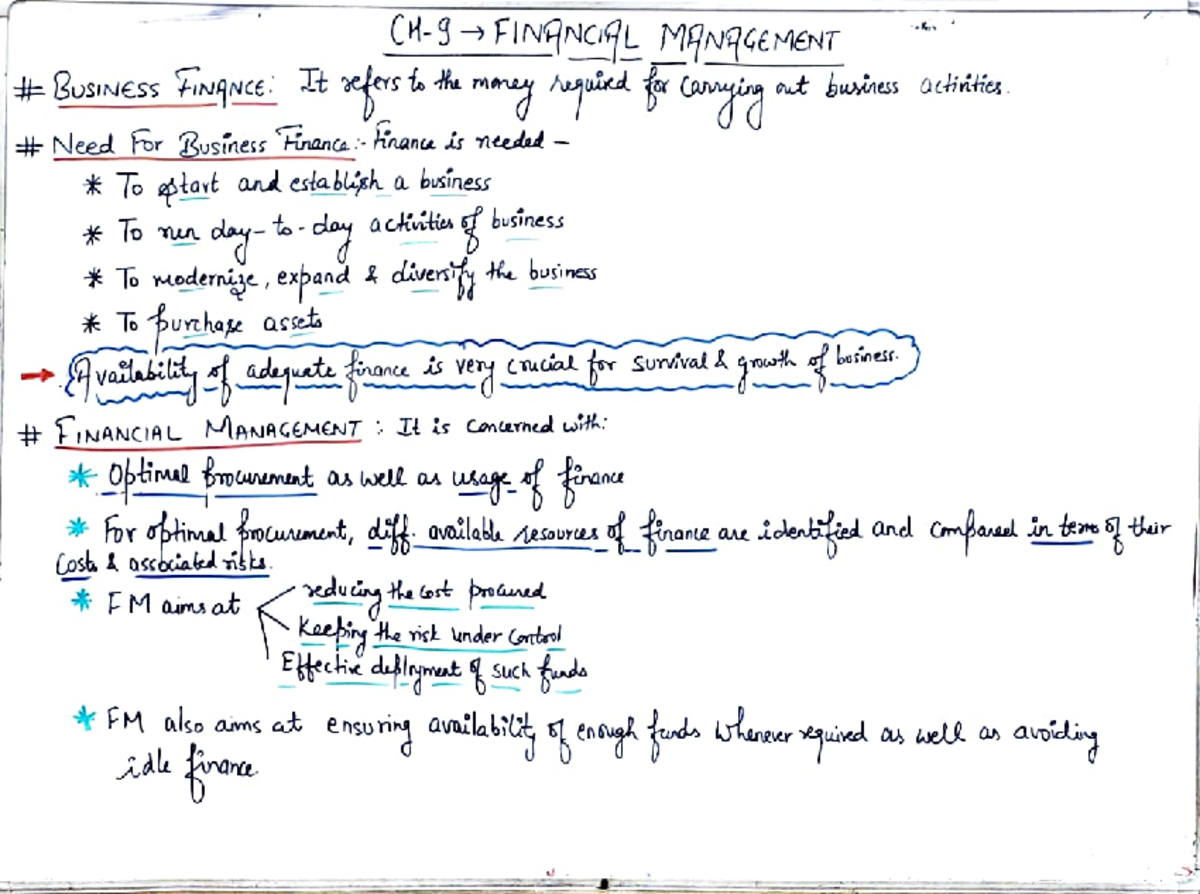 CH-9 → FINANCIAL MANAGEMENT
# BUSINESS FINANCE: It refers to the money required for carrying out business activities.
# Need For Business Finance:- Finance is needed –
* To start and establish a business
* To run day-to-day activities of business
* To modernize, expand & diversify the business
* To purchase assets
→ Availability of adequate finance is very crucial for survival & growth of business.
# FINANCIAL MANAGEMENT : It is concerned with:
* Optimal procurement as well as usage of finance
* For optimal procurement, diff. available resources of finance are identified and compared in terms of their
Costs & associated risks.
* FM aims at
reducing the cost procured
Keeping the risk under control
Effective deployment of such funds
* FM also aims at ensuring availability of enough funds whenever required as well as avoiding
idle finance.